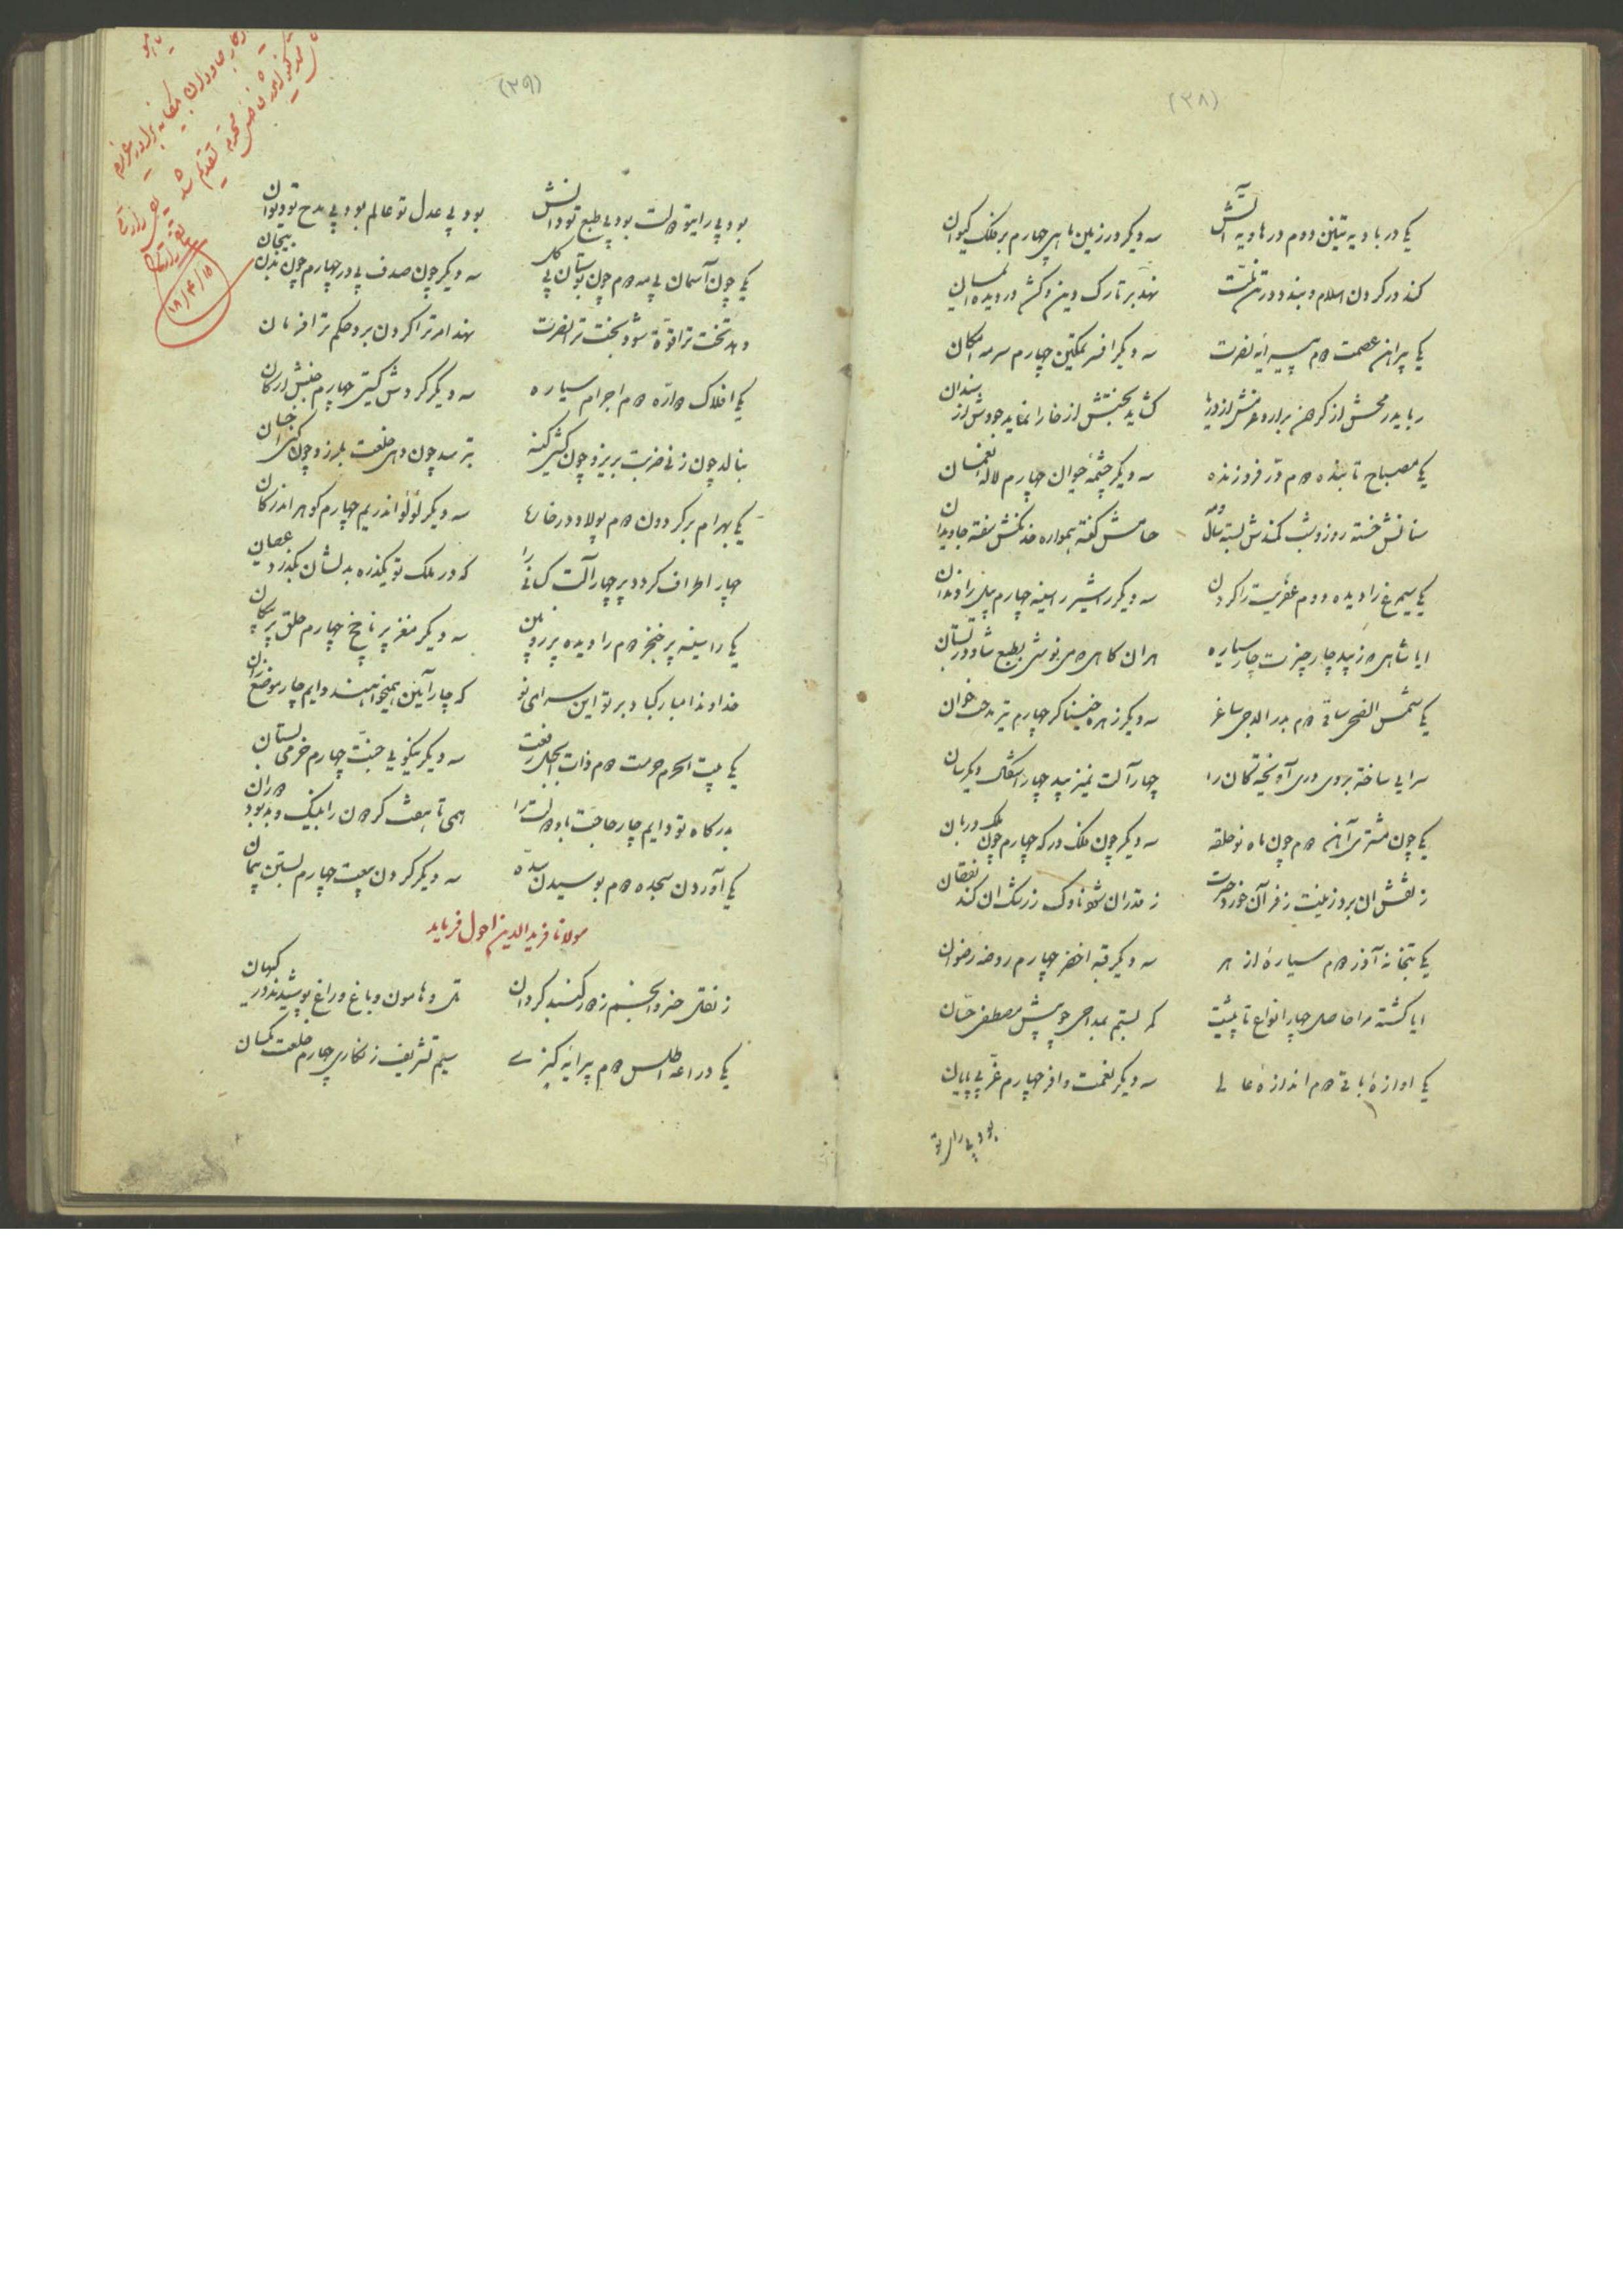 (۳۸)
یکی در بادیه تنین دوم در هاویه آتش سه دیگر در زمین ماهی چهارم بر فلک کیوان
کند در گردن اسلام و بندد در تن
نهد بر تارک دین و کشد در دیده
یکی پیراهن عصمت دوم پیرایه نصرت سه دیگر افسر تمکین چهارم سرمه امکان
رباید رمحش از گرد از دریا گشاید از خارا نماید جودش از سندان
یکی مصباح تابنده دوم در فروزنده سه دیگر چشمه حیوان چهارم لاله نعمان
سنانش خسته روز و شب کمندش بسته سال و مه حسامش کفته همواره خدنگش سفته جاویدان
یکی سیمرغ را دیده دوم عفریت را گردن سه دیگر شیر را سینه چهارم پیل را دندان
ایا شاهی که زیبد چار چیزت چار سیاره هر آن گاهی که می نوشی بطبع شاد در بستان
یکی شمس الضحی ساقی دوم بدر الدجی ساغر سه دیگر زهره خنیاگر چهارم تیر مدحت خوان
سرایی ساخته بروی دری آویخته کان را چهار آلت نمیزیبد چهار اشکال دیگرسان
یکی چون مشتری آهن دوم چون ماه نو حلقه سه دیگر چون فلک درگه چهارم چون ملک دربان
ز نقش آن برد زینت ز فر آن خورد حسرت ز قدر آن شود ناوک ز رشک آن کند نقصان
یکی بتخانه آذر دوم سیاره ازهر سه دیگر قبه اخضر چهارم روضه رضوان
ایا گشته مرا حاصل چهار انواع تا پیشت کمر بستم بمداحی چو پیش مصطفی حسان
یکی آوازه باقی دوم اندازه عالی سه دیگر نعمت وافر چهارم عز بی پایان
بود بی رای تو
(۳۹)
بود بی رای تو دولت بود بی طبع تو دانش بود بی عدل تو عالم بود بی مدح تو دیوان
یکی چون آسمان بی مه دوم چون بوستان بی گل سه دیگر چون صدف بی در چهارم چون بدن بیجان
دهد تخت ترا قوة شود بخت ترا نصرت نهد امر ترا گردن برد حکم ترا فرمان
یکی افلاک دواره دوم اجرام سیاره سه دیگر گردش گیتی چهارم جنبش ارکان
بنالد چون زنی ضربت بریزد چون کشی کینه بترسد چون دهی خلعت بلرزد چون کنی
یکی بهرام بر گردون دوم پولاد در خارا سه دیگر لؤلؤ اندر یم چهارم گوهر اندر کان
چهار اطراف گردد پر چهار آلت کسانی را که در ملک تو یکذره بدلشان بگذرد عصیان
یکی را سینه پر خنجر دوم را دیده پر زوبین سه دیگر مغز پر ناچخ چهارم حلق پر پیکان
خداوندا مبارکباد بر تو این سرای نو که چار آیین همیخواهند دایم چار موضع زان
یکی بیت الحرم حرمت دوم ذات رفعت سه دیگر نیکویی جنت چهارم خرمی بستان
بدرگاه تو دایم چار حاجت باد دولت را همی تا هفت گردون را بنیک و بد بود دوران
یکی آوردن سجده دوم بوسیدن سده سه دیگر کردن بیعت چهارم بستن پیمان
مولانا فریدالدین احول فرماید
ز نقل خسرو انجم ز دور گنبد گردان تل و هامون و باغ و راغ پوشیدند در کیهان
یکی دراعه اطلس دوم پیرایه سیم تشریف زنگاری چهارم خلعت یکسان
۱۸/۴/۱۵